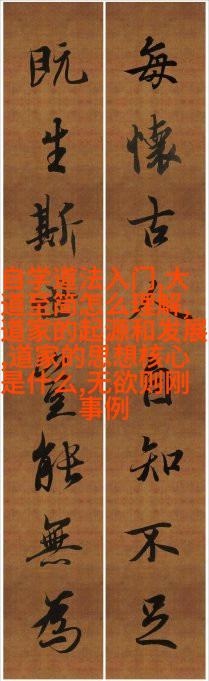 每懷古人自知不足
既生斯世豈能無為
自学道法入门,大
道至简怎么理解,
道家的起源和发展
,道家的思想核心
是什么,无欲则刚
事例